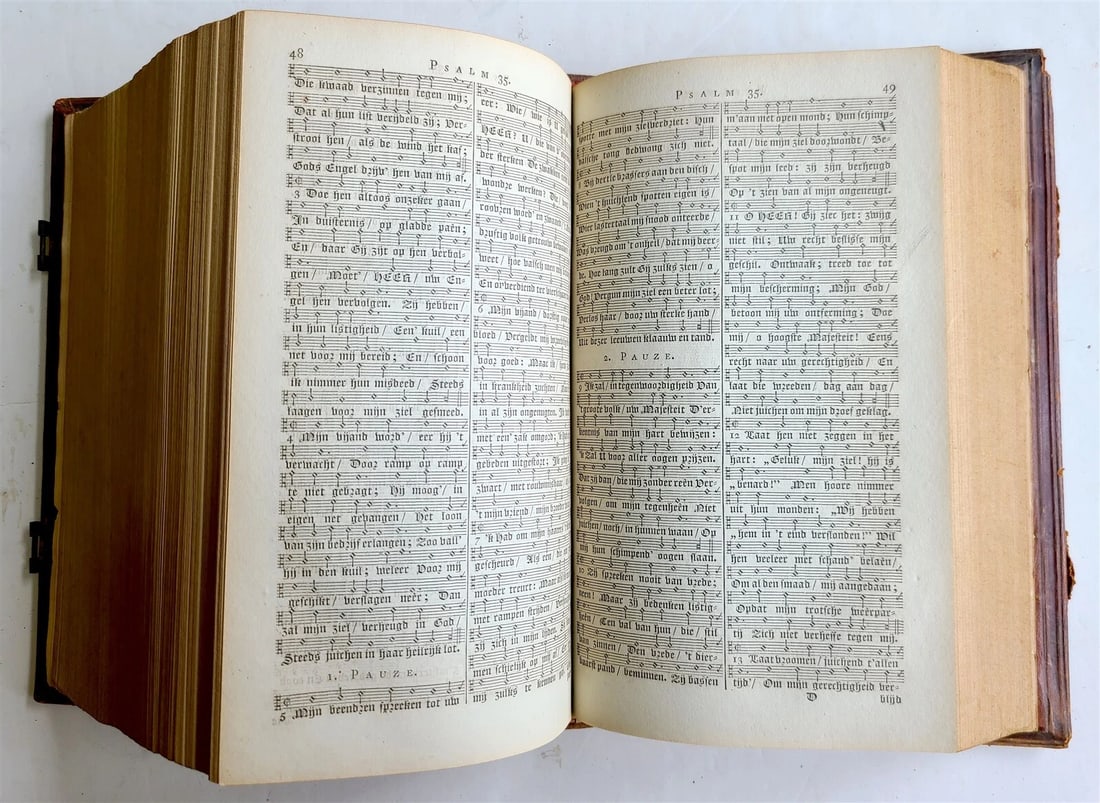 48
PSALM 35.
Die kwaad verzinnen tegen mij;
Dat al hun list verijdeld zij; Ver-
strooi hen/ als de wind het kaf;
Gods Engel drijv' hen van mij af.
3 Doe hen altoos onzeker gaan/
In duisternis/ op gladde paên;
En/ daar Gij zijt op hen verbol-
gen/ Moet/ HEER/ uw En-
gel hen vervolgen. Zij hebben/
in hun listigheid/ Een' kuil/ een
net voor mij bereid; En/ schoon
ik nimmer hun misdeed/ Steeds
laagen voor mijn ziel gesmeed.
4 Mijn vijand word'/ eer hij 't
verwacht/ Door ramp op ramp
te niet gebragt; Hij moog'/ in
eigen net gehangen/ Het loon
van zijn bedrijf erlangen; Zoo vall'
hij in den kuil; weleer Voor mij
geschikt/ verslagen neêr; Dan
zal mijn ziel/ verheugd in God/
Steeds juichen in haar heilrijk lot.
1. PAUZE.
5 Mijn beendren spreeken tot uw
eer: Wie/ wie is
HEER! U/ die van
der sterken De zwakken
wondre werken?
roovren woed' en
brystig volk getrouw
weet/ hoe valsch
En onverdiend ter vierschaar
6 Mijn vijand/
bloed/ Vergeldt mij
voor goed: Maar ik/
in krankheid zuchten/
in al zijn ongenugten.
met een' zak omgord;
gebeden uitgestort:
zwart/ met rouwmisbaar
't mijn vriend/ mijn broeder
7 'k Had om mijn
gescheurd/ Als een/ die
moeder treurt: Maar
met rampen strijden/
zij zich in mijn lijden.
men schielijk op mij
mij zulks te kennen
PSALM 35.
49
spotte met mijn zielverdriet: Hun
valsche tong bedwong zich niet.
8 Bij dertle brassers aan den disch/
Wien 't juichend spotten eigen is/
Wier lastertaal mij snood onteerde/
Was vreugd om 't onheil/ dat mij deer-
de. Hoe lang zult Gij zulks zien/ o
God/ Vergun mijn ziel een beter lot;
Verlos haar/ door uw sterke hand/
Uit dezer leeuwen klaauw en tand.
2. PAUZE.
9 Ik zal/ in tegenwoordigheid Van
't groote volk/ uw Majesteit D'er-
kentnis van mijn hart bewijzen:
'k Zal U voor aller oogen prijzen.
Dat zij dan/ die mij zonder reên Ver-
volgen/ om mijn tegenheên Niet
juichen/ noch/ in hunnen waan/ Op
mij hun schimpend' oogen slaan.
10 Zij spreeken nooit van vrede;
neen! Maar zij bedenken listig-
heên/ Een val van hun/ die/ stil
van zinnen/ Den vrede/ 't dier-
baarst pand/ beminnen. Zij bassen
m' aan met open mond; Hun schimp-
taal/ die mijn ziel doorwondt/ Be-
spot mijn leed: zij zijn verheugd
Op 't zien van al mijn ongeneugt.
11 O HEER! Gij ziet het: zwijg
niet stil; Uw recht beslisse mijn
geschil. Ontwaak; treed toe tot
mijn bescherming; Mijn God/
betoon mij uw ontferming; Doe
mij/ o hoogste Majesteit! Eens
recht naar uw gerechtigheid/ En
laat die wreeden/ dag aan dag/
Niet juichen om mijn droef geslag.
12 Laat hen niet zeggen in het
hart: „Geluk/ mijn ziel! hij is
„benard!” Men hoore nimmer
uit hun monden: „Wij hebben
„hem in 't eind verslonden!” Wil
hen veeleer met schand' belaên/
Om al den smaad/ mij aangedaan;
Opdat mijn trotsche weerpar-
tij Zich niet verheffe tegen mij.
13 Laat vroomen/ juichend t'allen
tijd'/ Om mijn gerechtigheid ver-
D
blijd